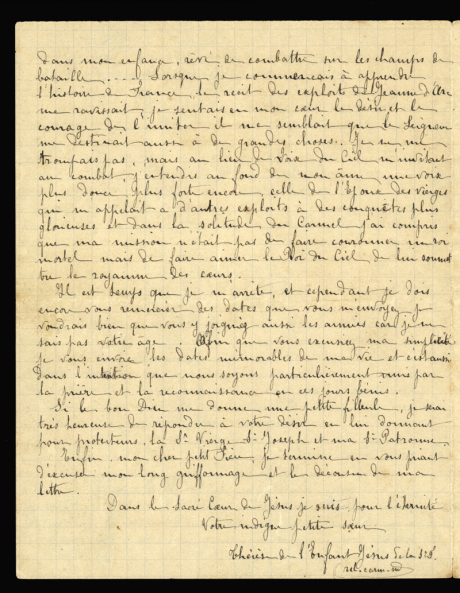 dans mon enfance, rêvé de combattre sur les champs de
bataille..... Lorsque je commençais à apprendre
l'histoire de France, le récit des exploits de Jeanne d'Arc
me ravissait, je sentais en mon cœur le désir et le
courage de l'imiter il me semblait que le Seigneur
me destinait aussi à de grandes choses. Je ne me
trompais pas, mais au lieu de voix du Ciel m'invitant
au combat, j'entendis au fond de mon âme une voix
plus douce, plus forte encore, celle de l'Epoux des vierges
qui m'appelait à d'autres exploits à des conquêtes plus
glorieuses et dans la solitude du Carmel j'ai compris
que ma mission n'était pas de faire couronner un roi
mortel mais de faire aimer le Roi du Ciel, de lui soumet
tre le royaume des cœurs.
Il est temps que je m'arrête, et cependant je dois
encore vous remercier des dates que vous m'envoyez, je
voudrais bien que vous y joigniez aussi les années car je ne
sais pas votre âge. Afin que vous excusiez ma simplicité
je vous envoie les dates mémorables de ma vie et c'est aussi
dans l'intention que nous soyons particulièrement unis par
la prière et la reconnaissance en ces jours bénis.
Si le bon Dieu me donne une petite filleule, je serai
très heureuse de répondre à votre désir en lui donnant
pour protecteurs, la Ste Vierge St Joseph et ma Ste Patronne.
Enfin, mon cher petit Frère, je termine en vous priant
d'excuser mon long griffonnage et le décousu de ma
lettre.
Dans le Sacré Cœur de Jésus je suis pour l'éternité
Votre indigne petite sœur
Thérèse de l'Enfant Jésus de la Ste F.
rel. carm. ind